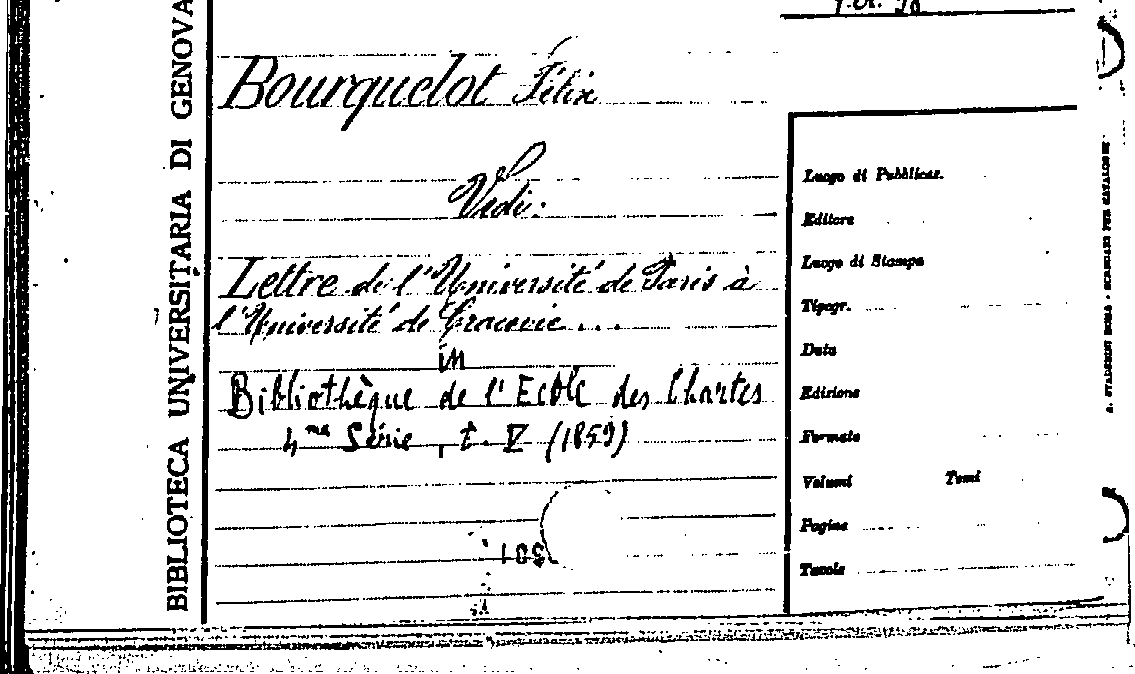 BIBLIOTECA UNIVERSITARIA DI GENOVA
Bourquelot Félix
Vedi:
Lettre de l'Université de Paris à
l'Université de Cracovie...
in
Bibliothèque de l'Ecole des Chartes
4me Série, t. V (1859)
Luogo di Pubblicaz.
Editore
Luogo di Stampa
Tipogr.
Data
Edizione
Formato
Volumi Tomi
Pagine
Tavole